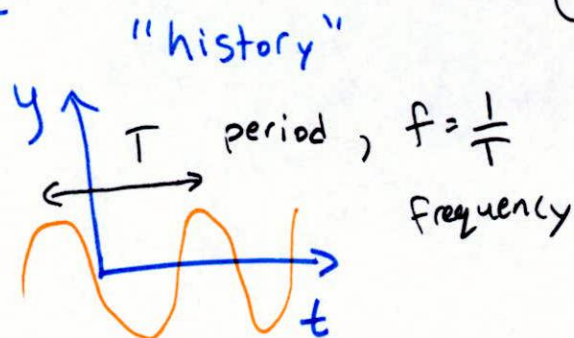 "history"
y
T period, f = 1/T
frequency
t